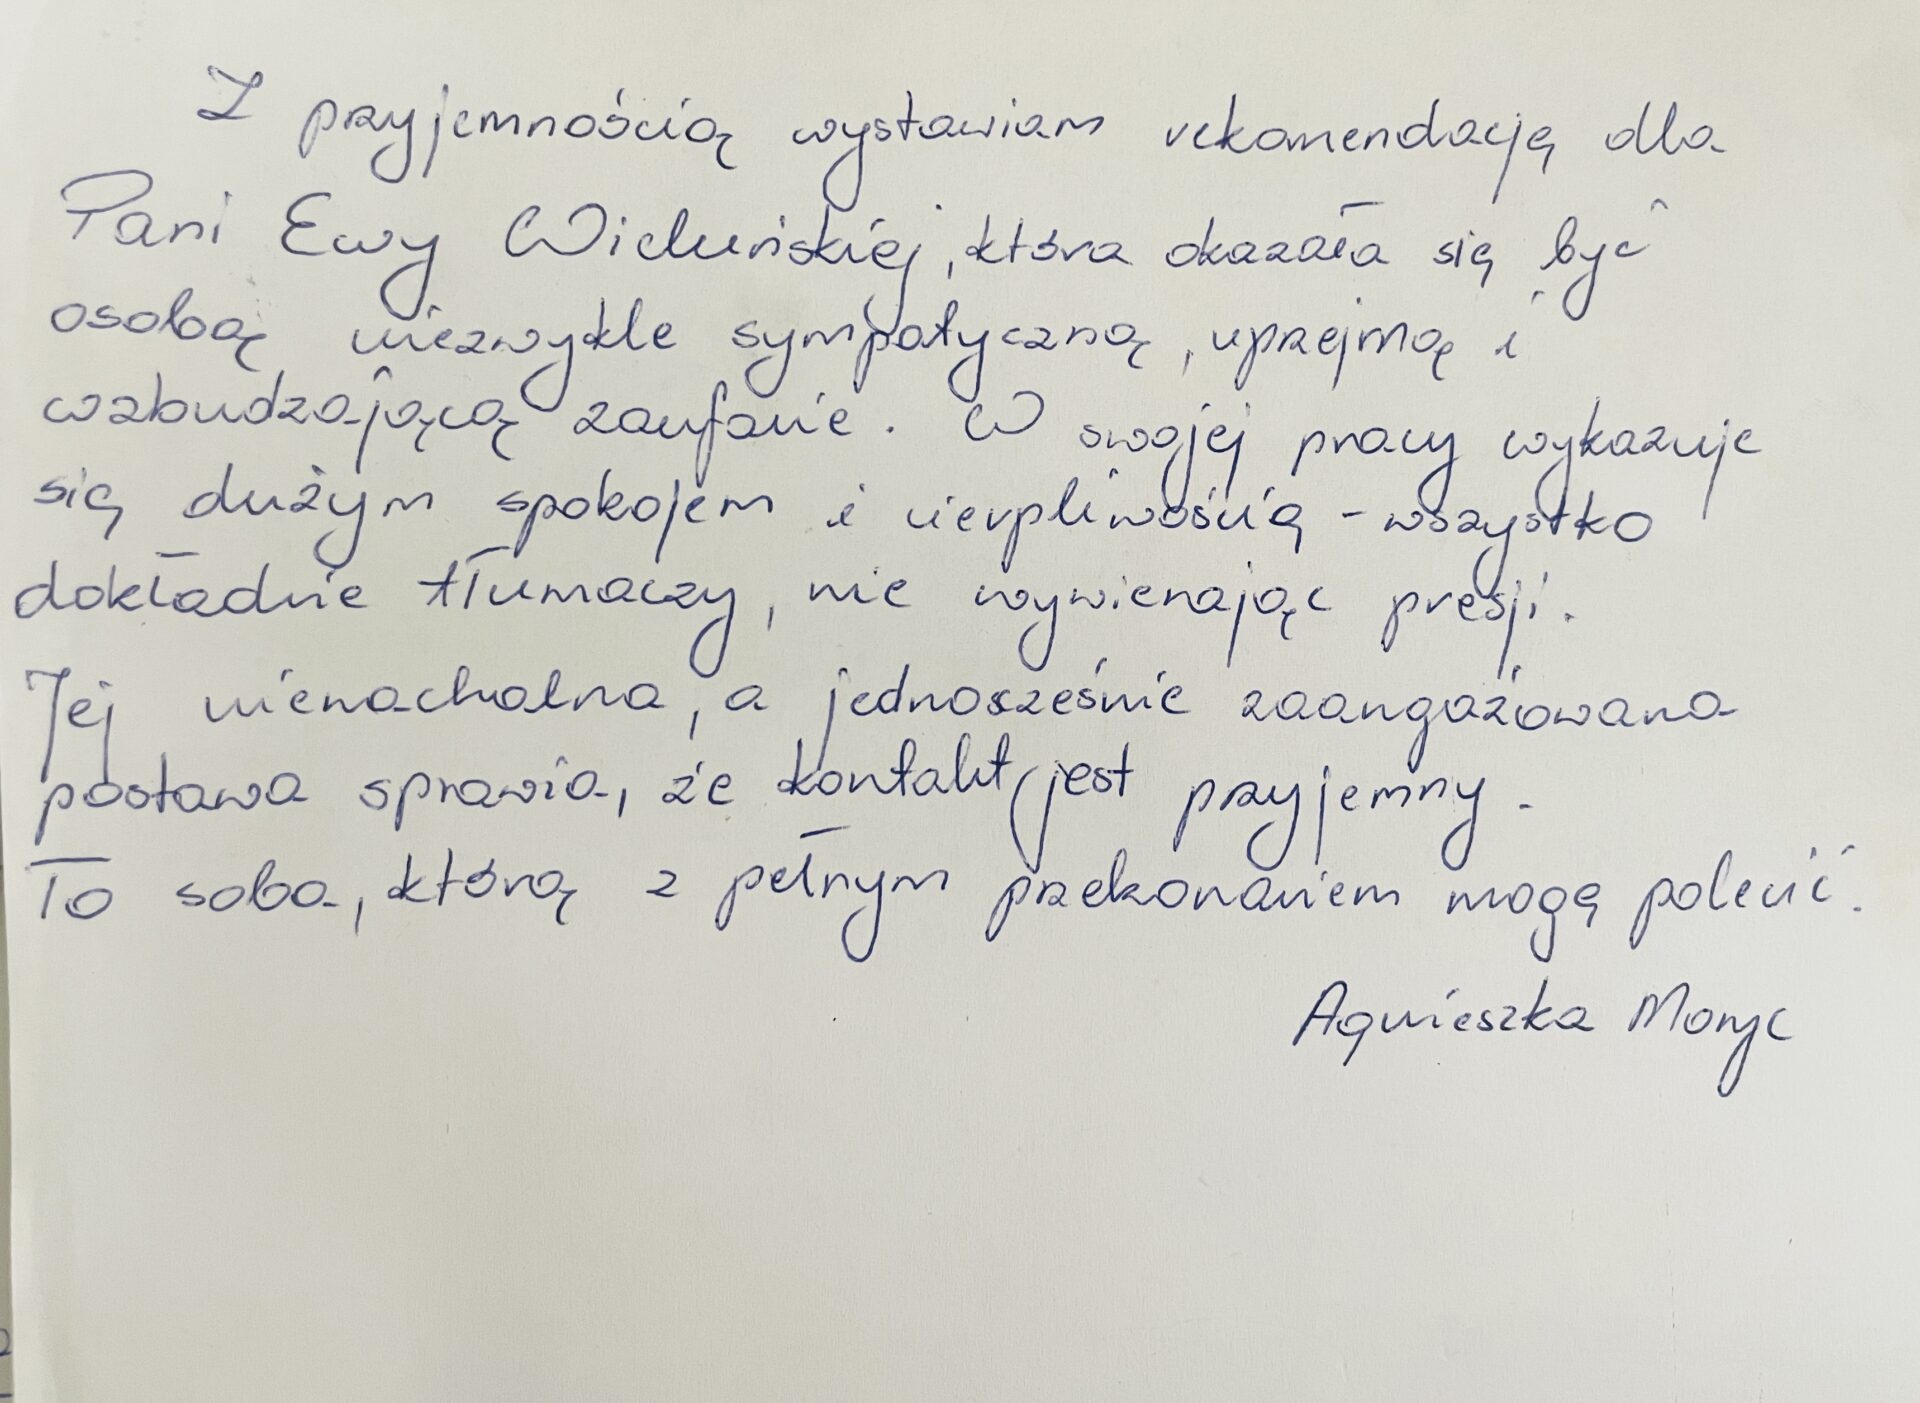 Z przyjemnością wystawiam rekomendację dla
Pani Ewy Wieluńskiej, która okazała się być
osobą niezwykle sympatyczną, uprzejmą i
wzbudzającą zaufanie. W swojej pracy wykazuje
się dużym spokojem i cierpliwością - wszystko
dokładnie tłumaczy, nie wywierając presji.
Jej nienachalna, a jednosześnie zaangażowana
postawa sprawia, że kontakt jest przyjemny.
To soba, którą z pełnym przekonaniem mogę polecić.
Agnieszka Moryc